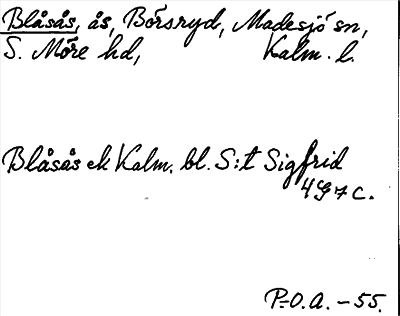 Blåsås, ås, Börsryd, Madesjö sn,
S. Möre hd, Kalm. l.
Blåsås ek Kalm. bl. S:t Sigfrid
4G7c.
P-O.A. - 55.